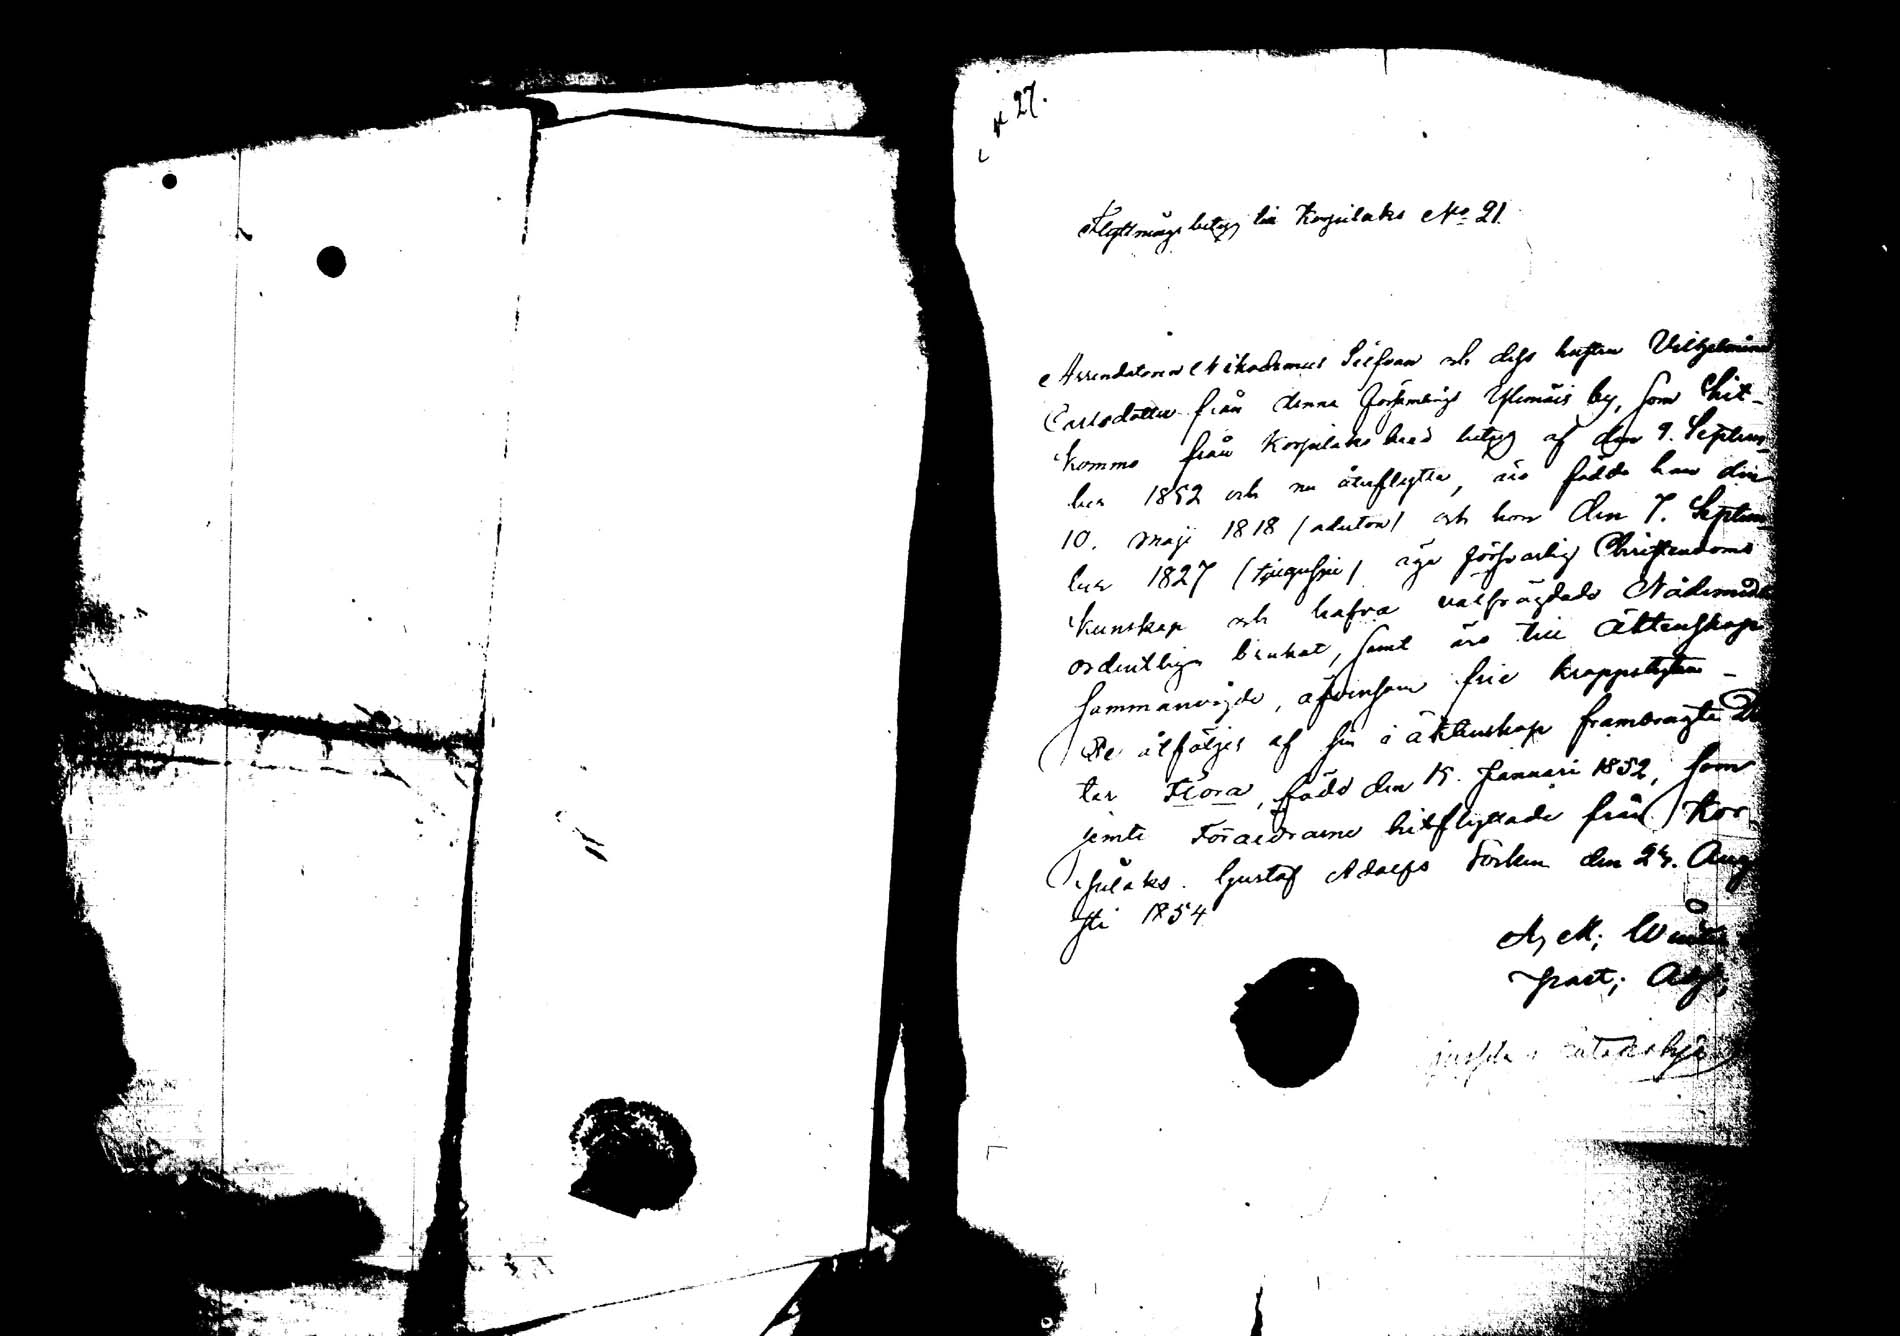 N 27.
Flyttningsbetyg till Korpilaks No 21.
Arrendatoren Nikodemus Silfvan och dess hustru Vilhelmina
Carlsdotter från denna Församlings Ylimäis by, som hit-
kommo från Korpilaks med betyg af den 9. Septem-
ber 1852 och nu återflytta, äro födde han den
10. Maji 1818 (aderton) och hon den 7. Septem-
ber 1827 (tjugusju) äga försvarlig Christendoms
kunskap och hafva välfrägdade Nådemedlen
ordentligen brukat, samt äro till Äktenskap
sammanvigde, äfvensom frie kroppslyten -
De åtföljes af sin i äktenskap frambragta Dot
ter Flora, född den 15. Januari 1852, som
jemte Föräldrarne hitflyttade från Kor-
pilaks. Gustaf Adolfs Socken den 24. Augu
sti 1854
Past; Adj;